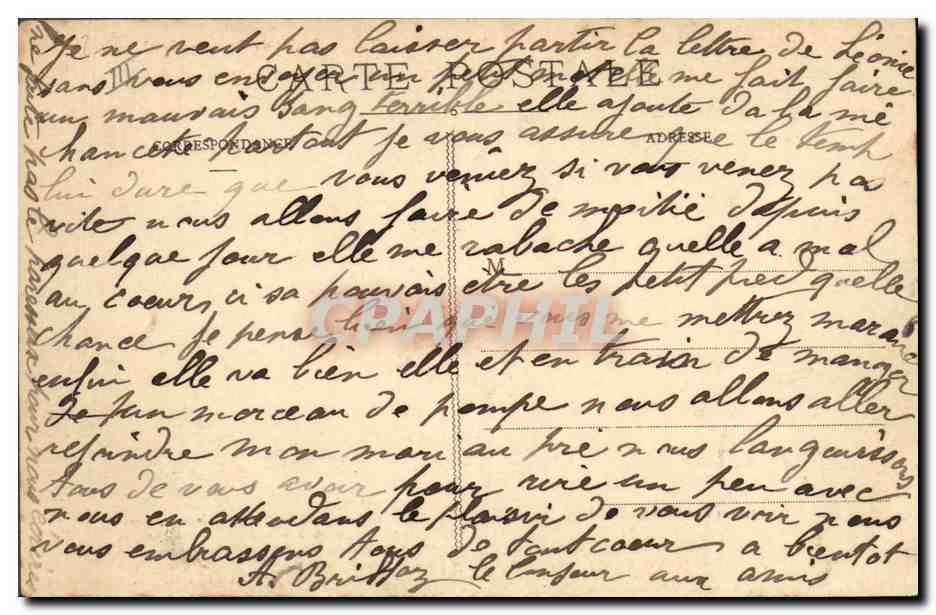 Je ne veut pas laisser partir la lettre de Léonie
sans vous envoyer un petit mot elle me fait faire
un mauvais sang terrible elle ajoute da la mé
chancete partout je vous assure que le temp
lui dure que vous veniez si vous venez pas
vite nous allons faire de moitié depuis
quelque jour elle me rabache quelle a mal
au coeur, ci sa pouvais etre les petit pied quelle
chance je pense bien que vous me mettrez maraine
enfin elle va bien elle et en train de manger
un morceau de pompe nous allons aller
rejoindre mon mari au pré nous languissons
tous de vous avoir pour rire un peu avec
nous en attendans le plaisir de vous voir nous
vous embrassons tous de tout coeur a bientot
le bonjour aux amis
CARTE POSTALE
CORRESPONDANCE
ADRESSE
M
CPAPHIL